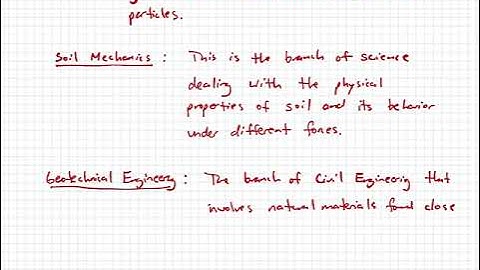 particles.
Soil Mechanics : This is the branch of science
dealing with the physical
properties of soil and its behavior
under different forces.
Geotechnical Engineering : The branch of Civil Engineering that
involves natural materials found close